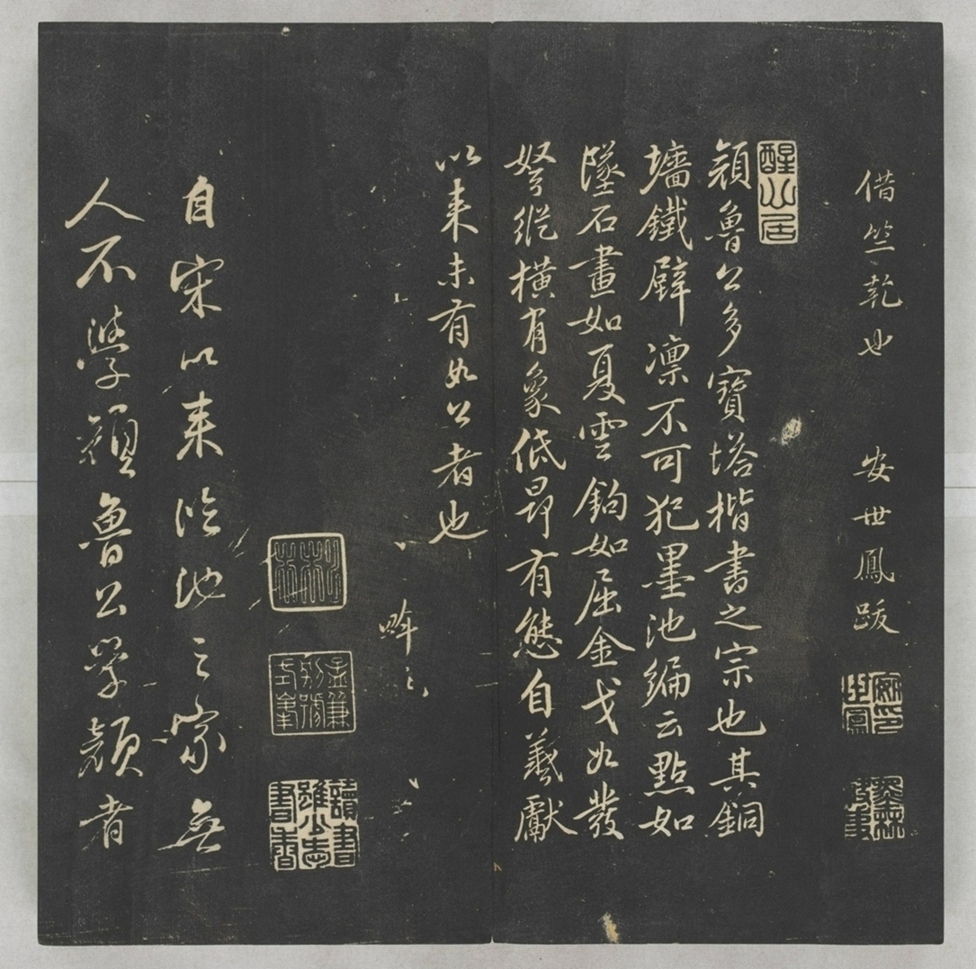 借竺乾也 安世鳳跋
醒山居
顏魯公多寶塔楷書之宗也其銅
墻鐵壁凛不可犯墨池編云點如
墜石畫如夏雲鉤如屈金戈如發
弩縱橫有象低昂有態自羲獻
以来未有如公者也
自宋以来臨池之家無
人不學顏魯公學顏者